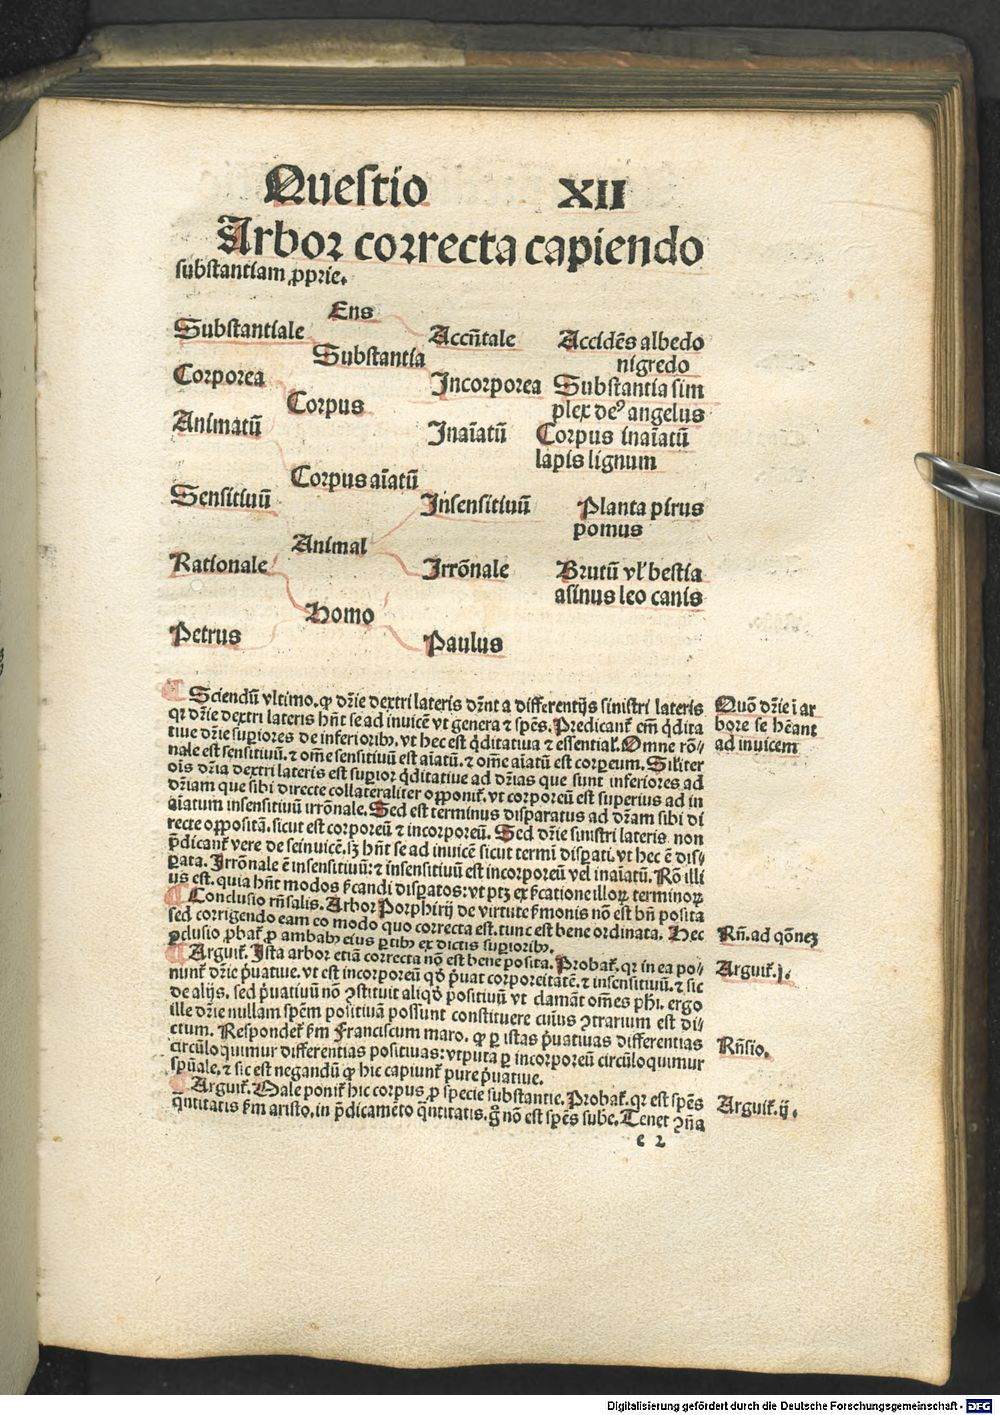 Questio XII
Arbor correcta capiendo
substantiam ꝓprie.
Ens
Substantiale Accñtale Accidẽs albedo
Substantia nigredo
Corporea Incorporea Substantia sim
Corpus plex deꝰ angelus
Animatũ Inaĩatũ Corpus inaĩatũ
lapis lignum
Corpus aĩatũ
Sensitiuũ Insensitiuũ Planta pirus
pomus
Animal
Rationale Irrõnale Brutũ vl' bestia
asinus leo canis
Homo
Petrus Paulus
¶ Sciendũ vltimo. ꝙ dr̃ie dextri lateris dr̃nt a differentijs sinistri lateris
qꝛ dr̃ie dextri lateris hñt se ad inuicẽ vt genera ⁊ sp̃es. Predicant̃ em̃ q̃dita
tiue dr̃ie supiores de inferioribꝰ, vt hec est q̃ditatiua ⁊ essential'. Omne rõ-
nale est sensitiuũ. ⁊ om̃e sensitiuũ est aĩatũ. ⁊ om̃e aĩatũ est corpeum. Silĩter
oĩs dr̃ia dextri lateris est supior q̃ditatiue ad dr̃ias que sunt inferiores ad
dr̃iam que sibi directe collateraliter opponit̃. vt corporeũ est superius ad in
aĩatum insensitiuũ irrõnale. Sed est terminus disparatus ad dr̃am sibi di
recte oppositã. sicut est corporeũ ⁊ incorporeũ. Sed dr̃ie sinistri lateris non
p̃dicant̃ vere de seinuicẽ. sꝫ hñt se ad inuicẽ sicut term̃i disꝑati. vt hec ẽ dis-
ꝑata. Irrõnale ẽ insensitiuũ: ⁊ insensitiuũ est incorporeũ vel inaĩatũ. Rõ illi
us est. quia hñt modos sĩcandi disꝑatos: vt ptꝫ ex sĩcatione illoꝝ terminoꝝ
¶ Conclusio rñsalis. Arbor Porphirij de virtute s̃monis nõ est bñ posita
sed corrigendo eam eo modo quo correcta est. tunc est bene ordinata. Hec
ꝯclusio ꝓbat̃ ꝓ ambabꝰ eius ꝑtibꝰ ex dictis supioribꝰ.
¶ Arguit̃. Ista arbor etiã correcta nõ est bene posita. Probat̃. qꝛ in ea po-
nunt̃ dr̃ie p̃uatiue. vt est incorporeũ qð p̃uat corporeitatẽ. ⁊ insensitiuũ. ⁊ sic
de alijs. sed p̃uatiuũ nõ ꝯstituit aliqð positiuũ vt clamãt om̃es phĩ. ergo
ille dr̃ie nullam sp̃em positiuã possunt constituere cuiꝰ ꝯtrarium est di-
ctum. Respondet̃ sm̃ Franciscum maro. ꝙ ꝑ istas p̃uatiuas differentias
circũloquimur differentias positiuas: vtputa ꝑ incorporeũ circũloquimur
spũale. ⁊ sic est negandũ ꝙ hic capiunt̃ pure p̃uatiue.
¶ Arguit̃. Male ponit̃ hic corpus ꝓ specie substantie. Probat̃. qꝛ est sp̃es
q̃ntitatis sm̃ aristo. in p̃dicamẽto q̃ntitatis. g̊ nõ est sp̃es sube. Tenet ꝯña
e 2
Quõ dr̃ie ĩ ar
bore se hẽant
ad inuicem
Rñ. ad qõneꝫ
Arguit̃. j.
Rñsio.
Arguit̃. ij.
Digitalisierung gefördert durch die Deutsche Forschungsgemeinschaft - DFG